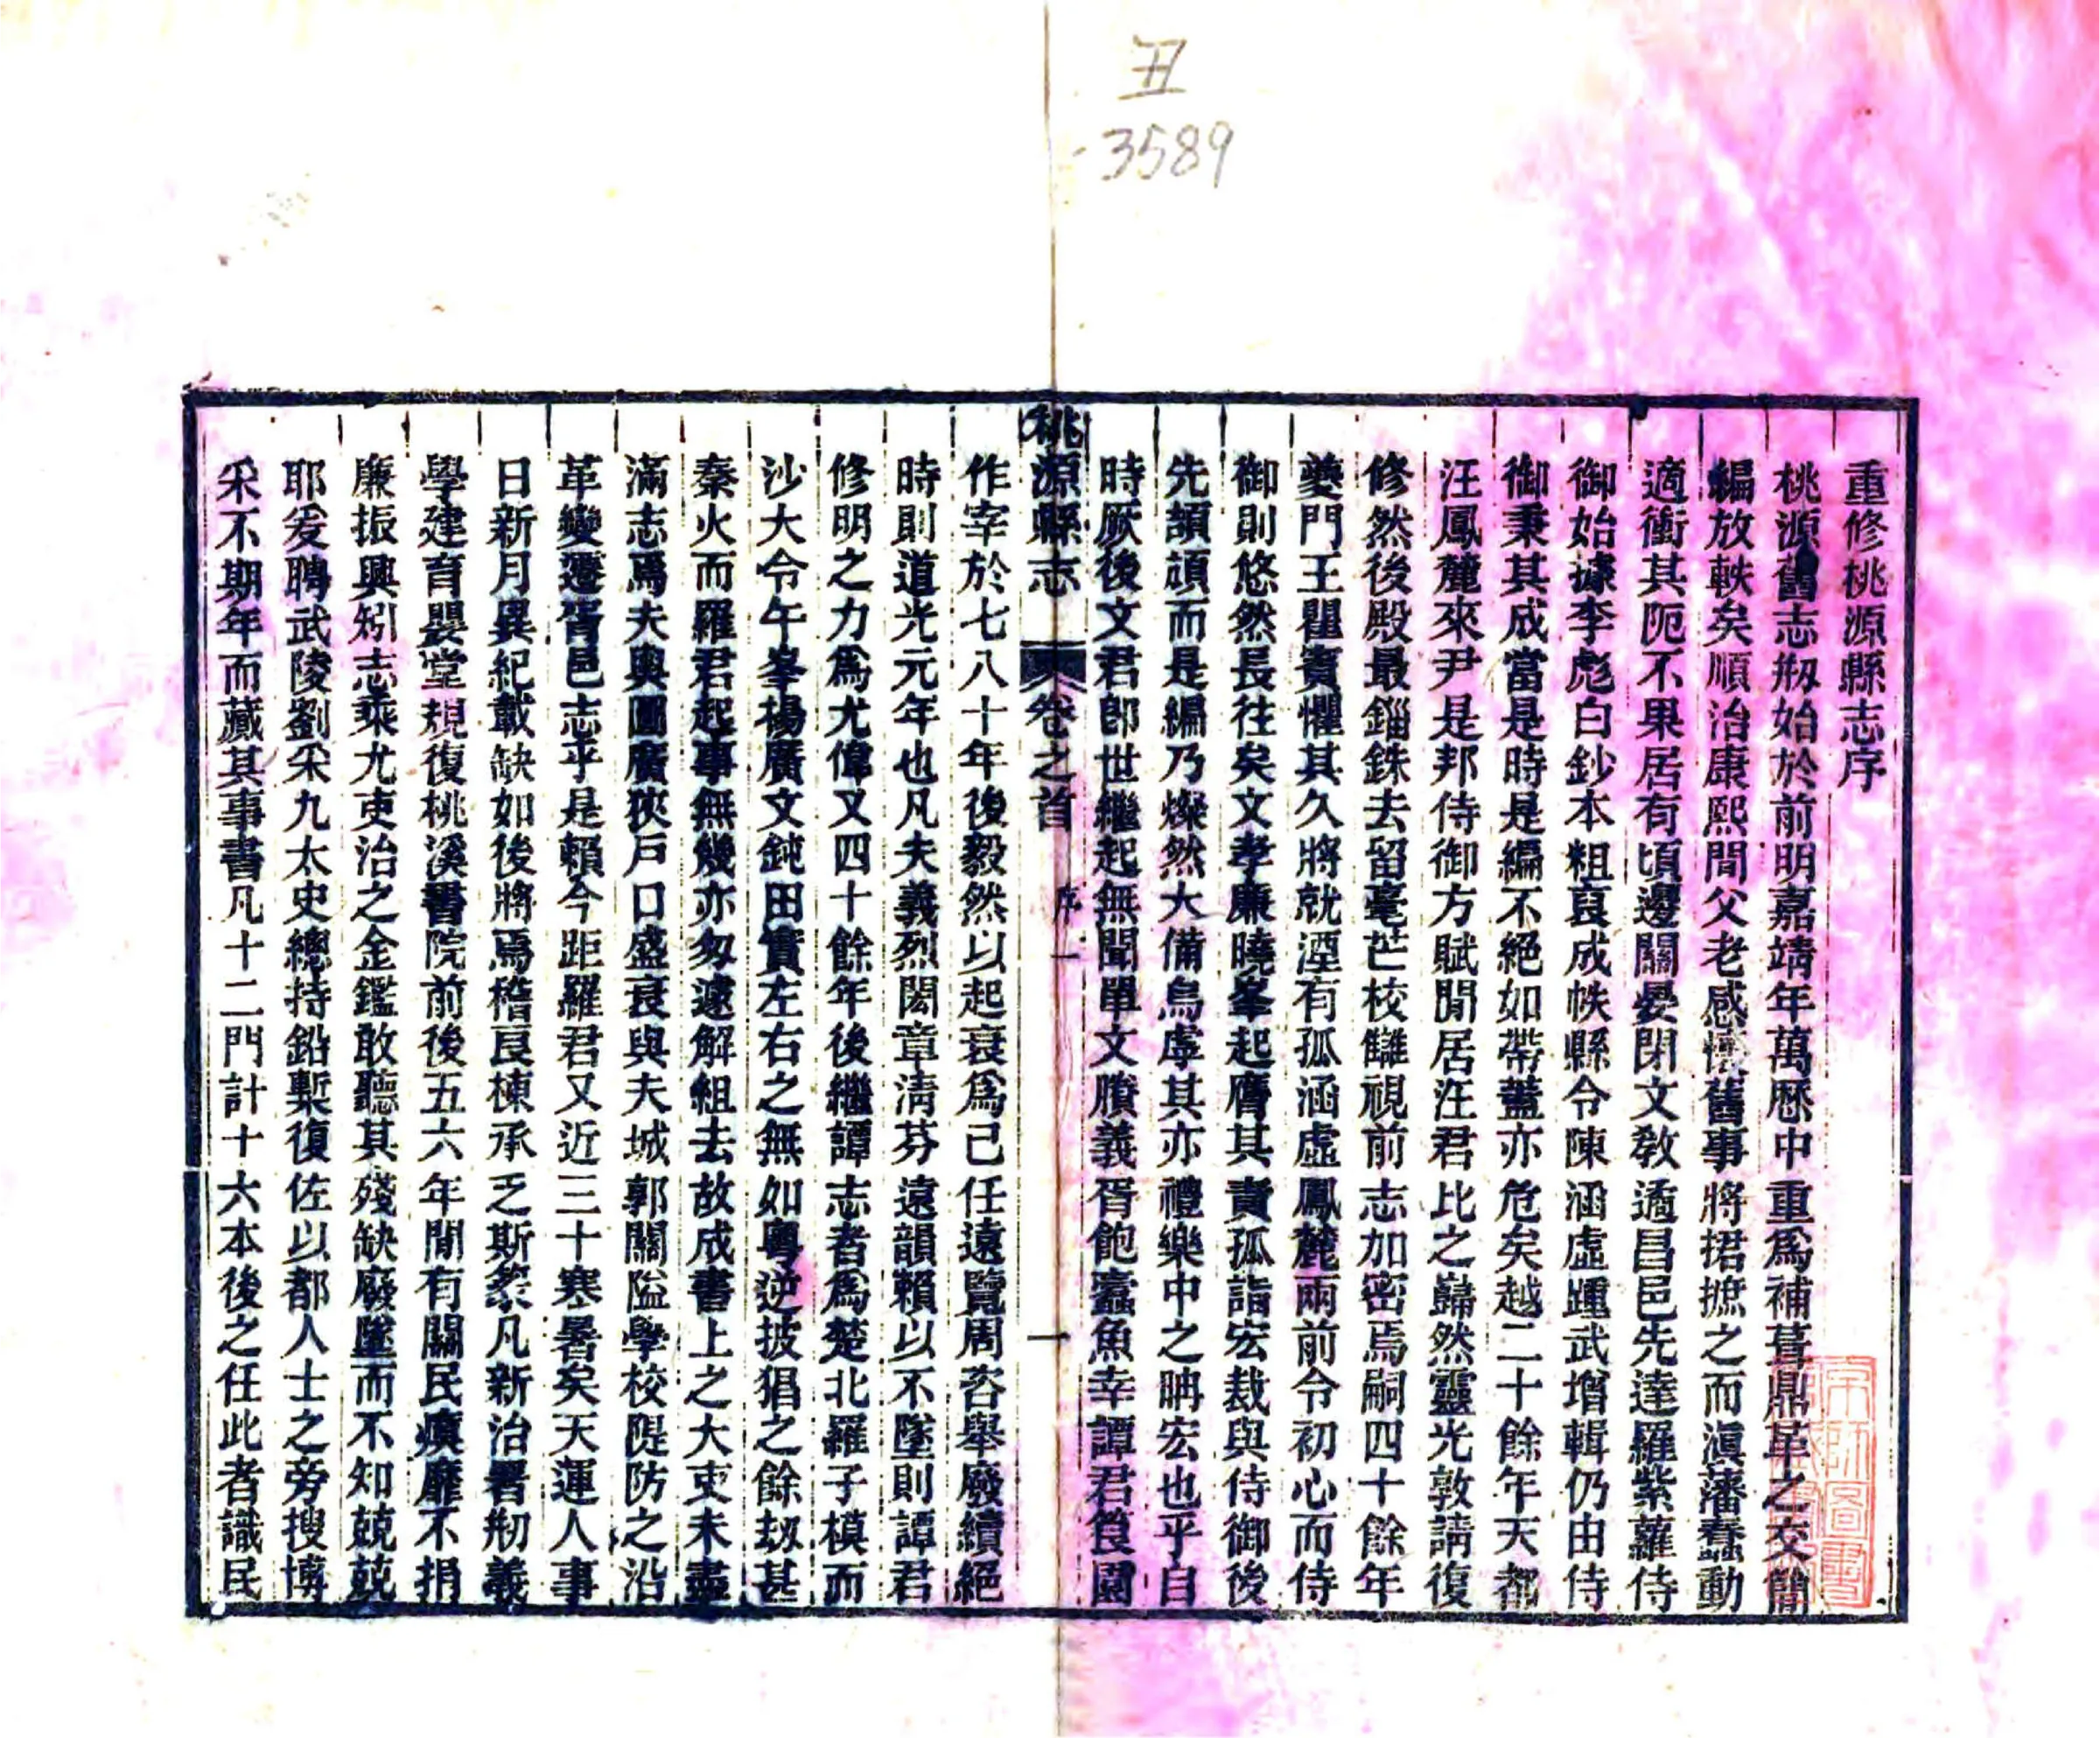 丑
3589
重修桃源縣志序
桃源舊志剏始於前明嘉靖年萬歷中重爲補葺鼎革之交簡
編放軼矣順治康熙間父老感懷舊事將捃摭之而滇藩蠢動
適衝其阨不果居有頃邊關晏閉文敎遹昌邑先達羅紫蘿侍
御始據李彪白鈔本粗裒成帙縣令陳涵虛踵武增輯仍由侍
御秉其成當是時是編不絕如帶蓋亦危矣越二十餘年天都
汪鳳麓來尹是邦侍御方賦閒居汪君比之巋然靈光敦請復
修然後殿最錙銖去留毫芒校雠視前志加密焉嗣四十餘年
夔門王瞿實懼其久將就湮有孤涵虛鳳麓兩前令初心而侍
御則悠然長往矣文孝廉曉峯起膺其責孤詣宏裁與侍御後
先頡頏而是編乃燦然大備烏虖其亦禮樂中之晭宏也乎自
時厥後文君卽世繼起無聞單文賸義胥飽蠹魚幸譚君筤園
桃源縣志 卷之首 序一 一
作宰於七八十年後毅然以起衰爲己任遠覽周咨舉廢續絕
時則道光元年也凡夫義烈閎章淸芬遠韻賴以不墜則譚君
修明之力爲尤偉又四十餘年後繼譚志者爲楚北羅子模而
沙大令午峯楊廣文鈍田實左右之無如粵逆披猖之餘刼甚
秦火而羅君起事無幾亦匆遽解組去故成書上之大吏未盡
滿志焉夫輿圖廣狹戶口盛衰與夫城郭關隘學校隄防之沿
革變遷胥邑志乎是賴今距羅君又近三十寒暑矣天運人事
日新月異紀載缺如後將焉稽艮棟承乏斯邑凡新治署剏義
學建育嬰堂規復桃溪書院前後五六年閒有關民瘼靡不捐
廉振興矧志乘尤吏治之金鑑敢聽其殘缺廢墜而不知兢兢
耶爰聘武陵劉采九太史總持鉛槧復佐以都人士之旁搜博
采不期年而藏其事書凡十二門計十六本後之任此者識民